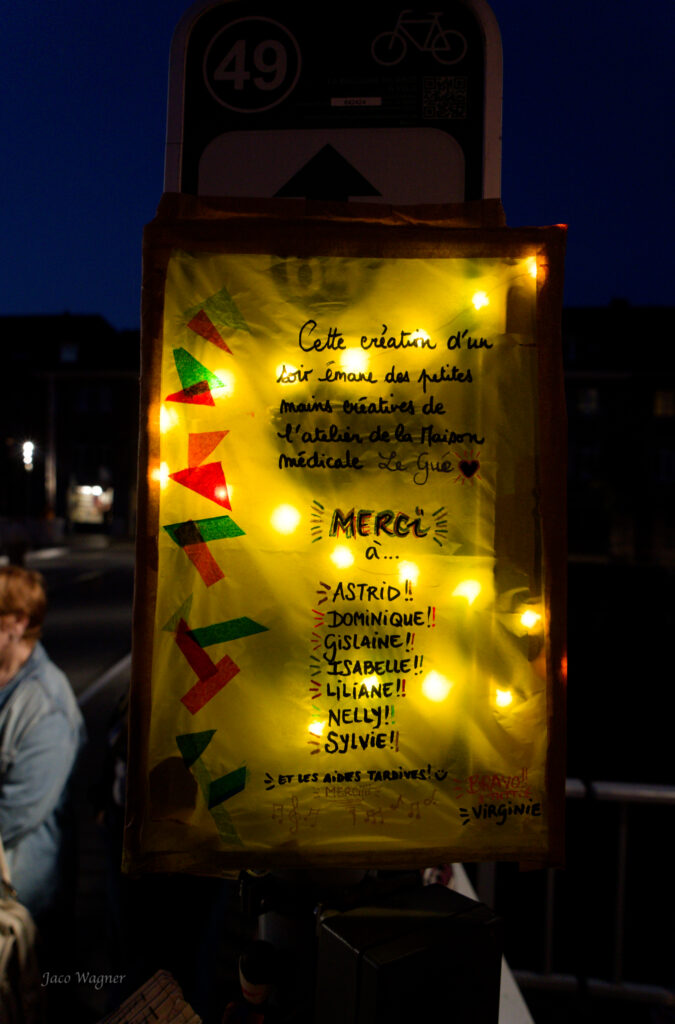 49
Cette création d'un
soir émane des petites
mains créatives de
l'atelier de la Maison
médicale Le Gué
MERCi
à...
ASTRID!!
DOMINIQUE!!
GISLAINE!!
ISABELLE!!
LILIANE!!
NELLY!!
SYLVIE!!
ET LES AIDES TARDIVES!
BRAVO!!
VIRGINIE
Jaco Wagner